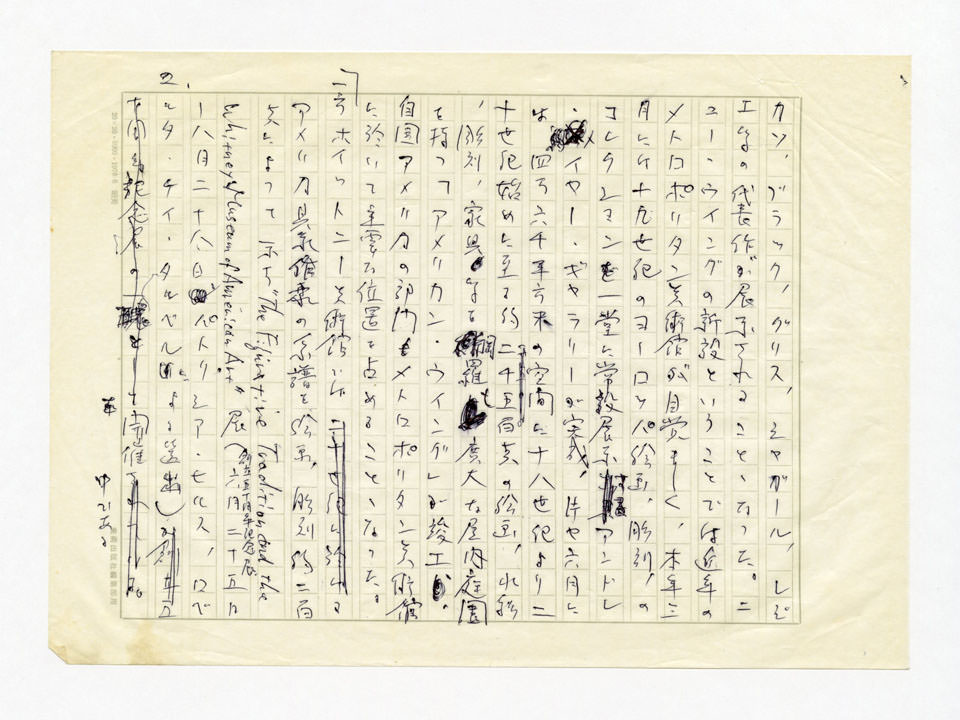 カソ、ブラック、グリス、シャガール、レジ
エ等の代表作が展示されることゝなった。ニ
ューウイングの新設ということでは近年の
メトロポリタン美術館が目覚ましく、本年三
月には十九世紀のヨーロッパ絵画、彫刻、の
コレクションを一堂に常設展示するアンドレ
・イヤー・ギャラリーが完成、片や六月に
は四万六千平方米の空間に十八世紀より二
十世紀始めに至る約二千五百点の絵画、水彩
、彫刻、家具等を網羅し、広大な屋内庭園
を持つアメリカン・ウイングが竣工、
自国アメリカの部門もメトロポリタン美術館
に於いて重要な位置を占めることゝなった。
一方ホイットニー美術館では
アメリカ具象の系譜を絵画、彫刻約二百
点によって示す "The Figurative Tradition and the
Whitney Museum of American Art" 展(創立五十周年記念展 六月二十五日
ー八月二十八日 パトリシア・ヒルス、ロベ
ルタ・ケイ・タルベルによる選出)が
開催中である